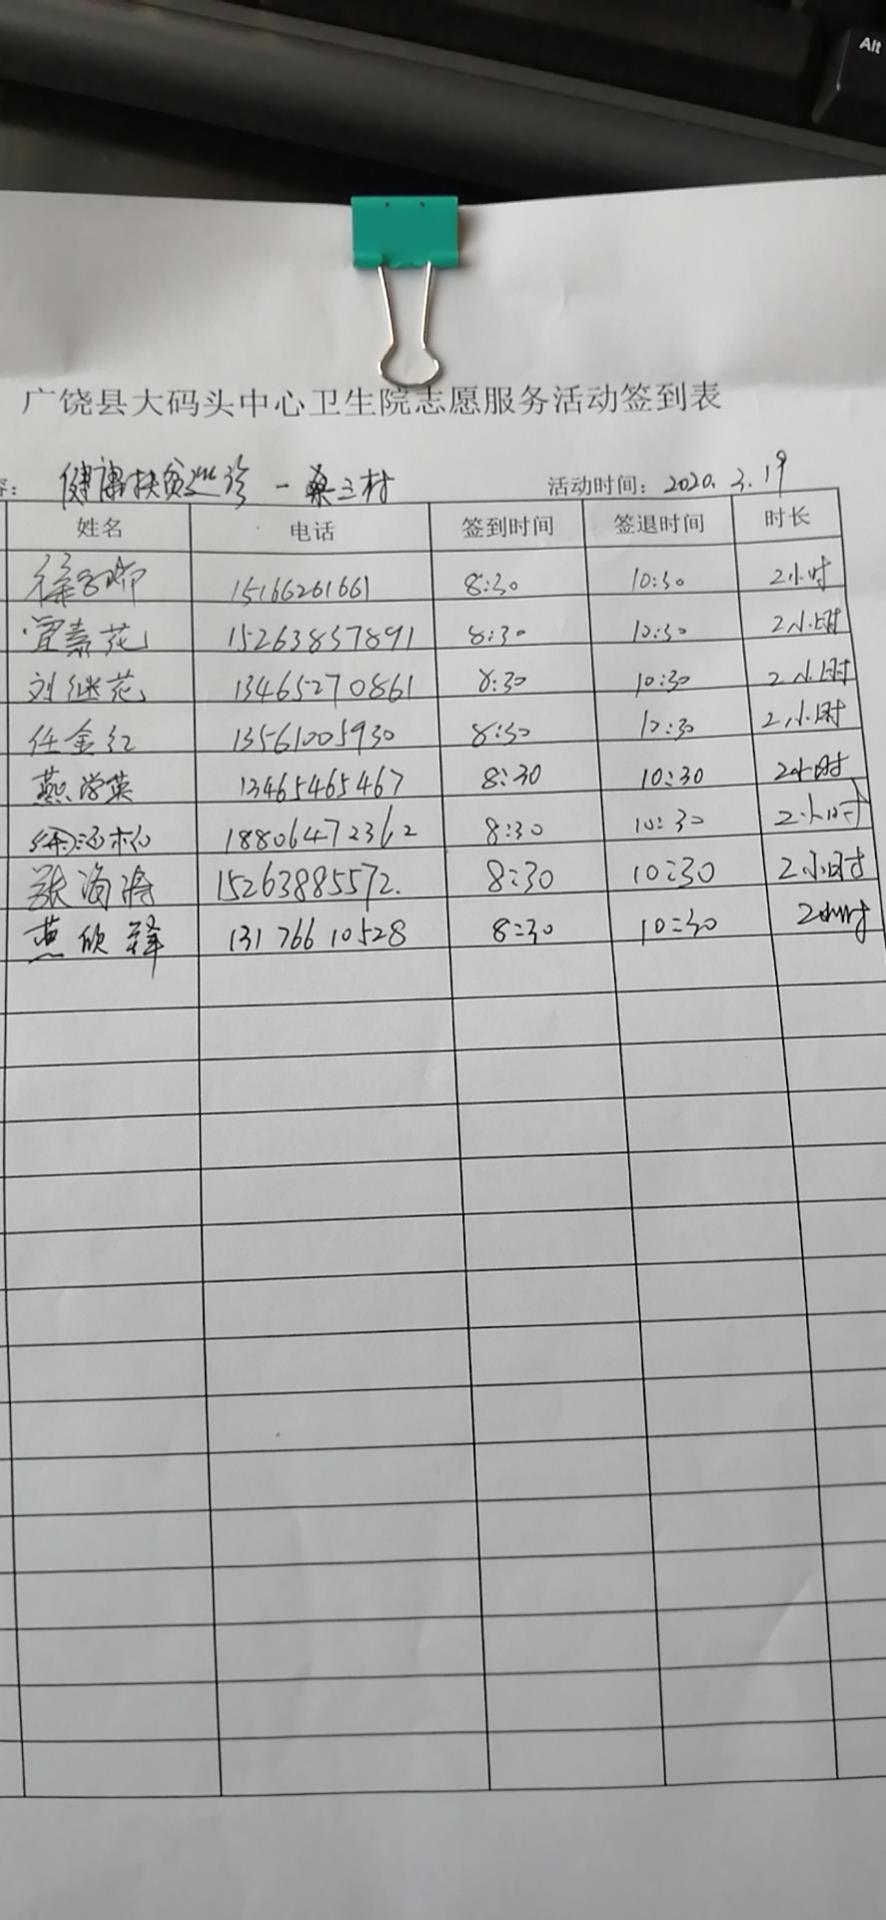 Alt
广饶县大码头中心卫生院志愿服务活动签到表
容： 健康扶贫巡诊 一桑三村 活动时间：2020.3.19
姓名 电话 签到时间 签退时间 时长
徐 15166261661 8:30 10:30 2小时
素花 15263857891 8:30 10:30 2小时
刘继花 13465270861 8:30 10:30 2小时
任金红 13561005930 8:30 10:30 2小时
燕学英 13465465467 8:30 10:30 2小时
18806472362 8:30 10:30 2小时
张海涛 15263885572. 8:30 10:30 2小时
燕欣锋 13176610528 8:30 10:30 2小时